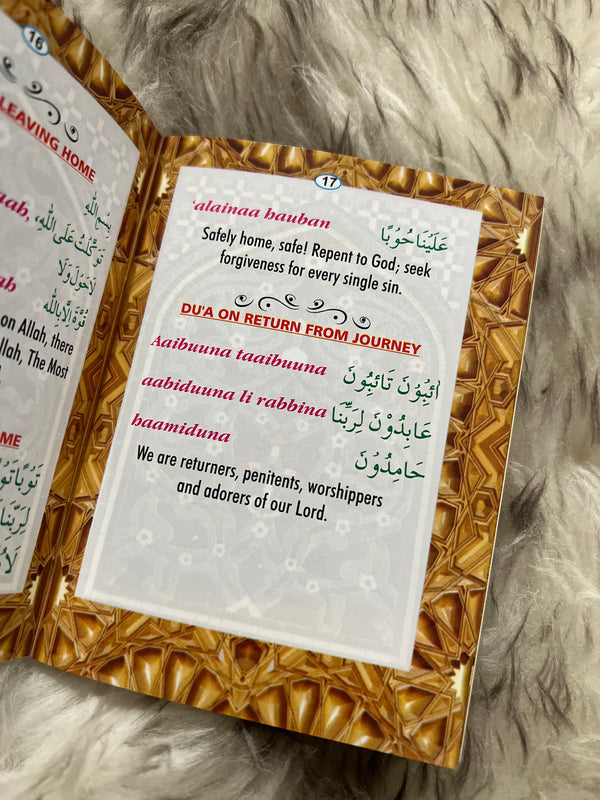 16
LEAVING HOME
aah,
بِسْمِ اللهِ
تَوَكَّلْتُ عَلَى اللهِ،
لَاحَوْلَ وَلَا
ah
قُوَّةَ اِلَّا بِاللهِ
on Allah, there
llah, The Most
ME
تَوْبًا تَوْ
لِرَبِّنَا
17
'alainaa hauban
عَلَيْنَا حُوْبًا
Safely home, safe! Repent to God; seek
forgiveness for every single sin.
DU'A ON RETURN FROM JOURNEY
Aaibuuna taaibuuna
اٰئِبُوْنَ تَائِبُوْنَ
aabiduuna li rabbina
عَابِدُوْنَ لِرَبِّنَا
haamiduna
حَامِدُوْنَ
We are returners, penitents, worshippers
and adorers of our Lord.